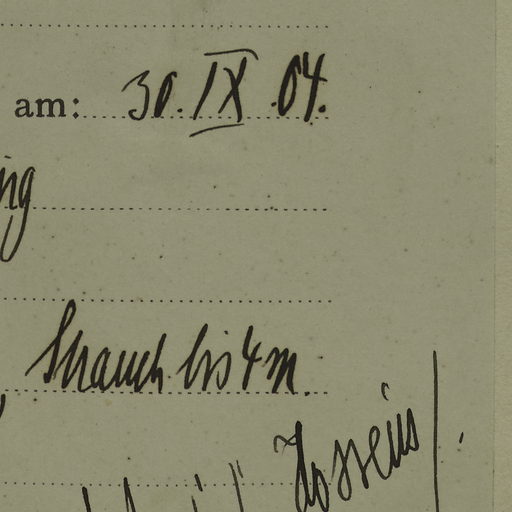 am: 30. IX .04.
Strauch bis 4 m.
Hosseus